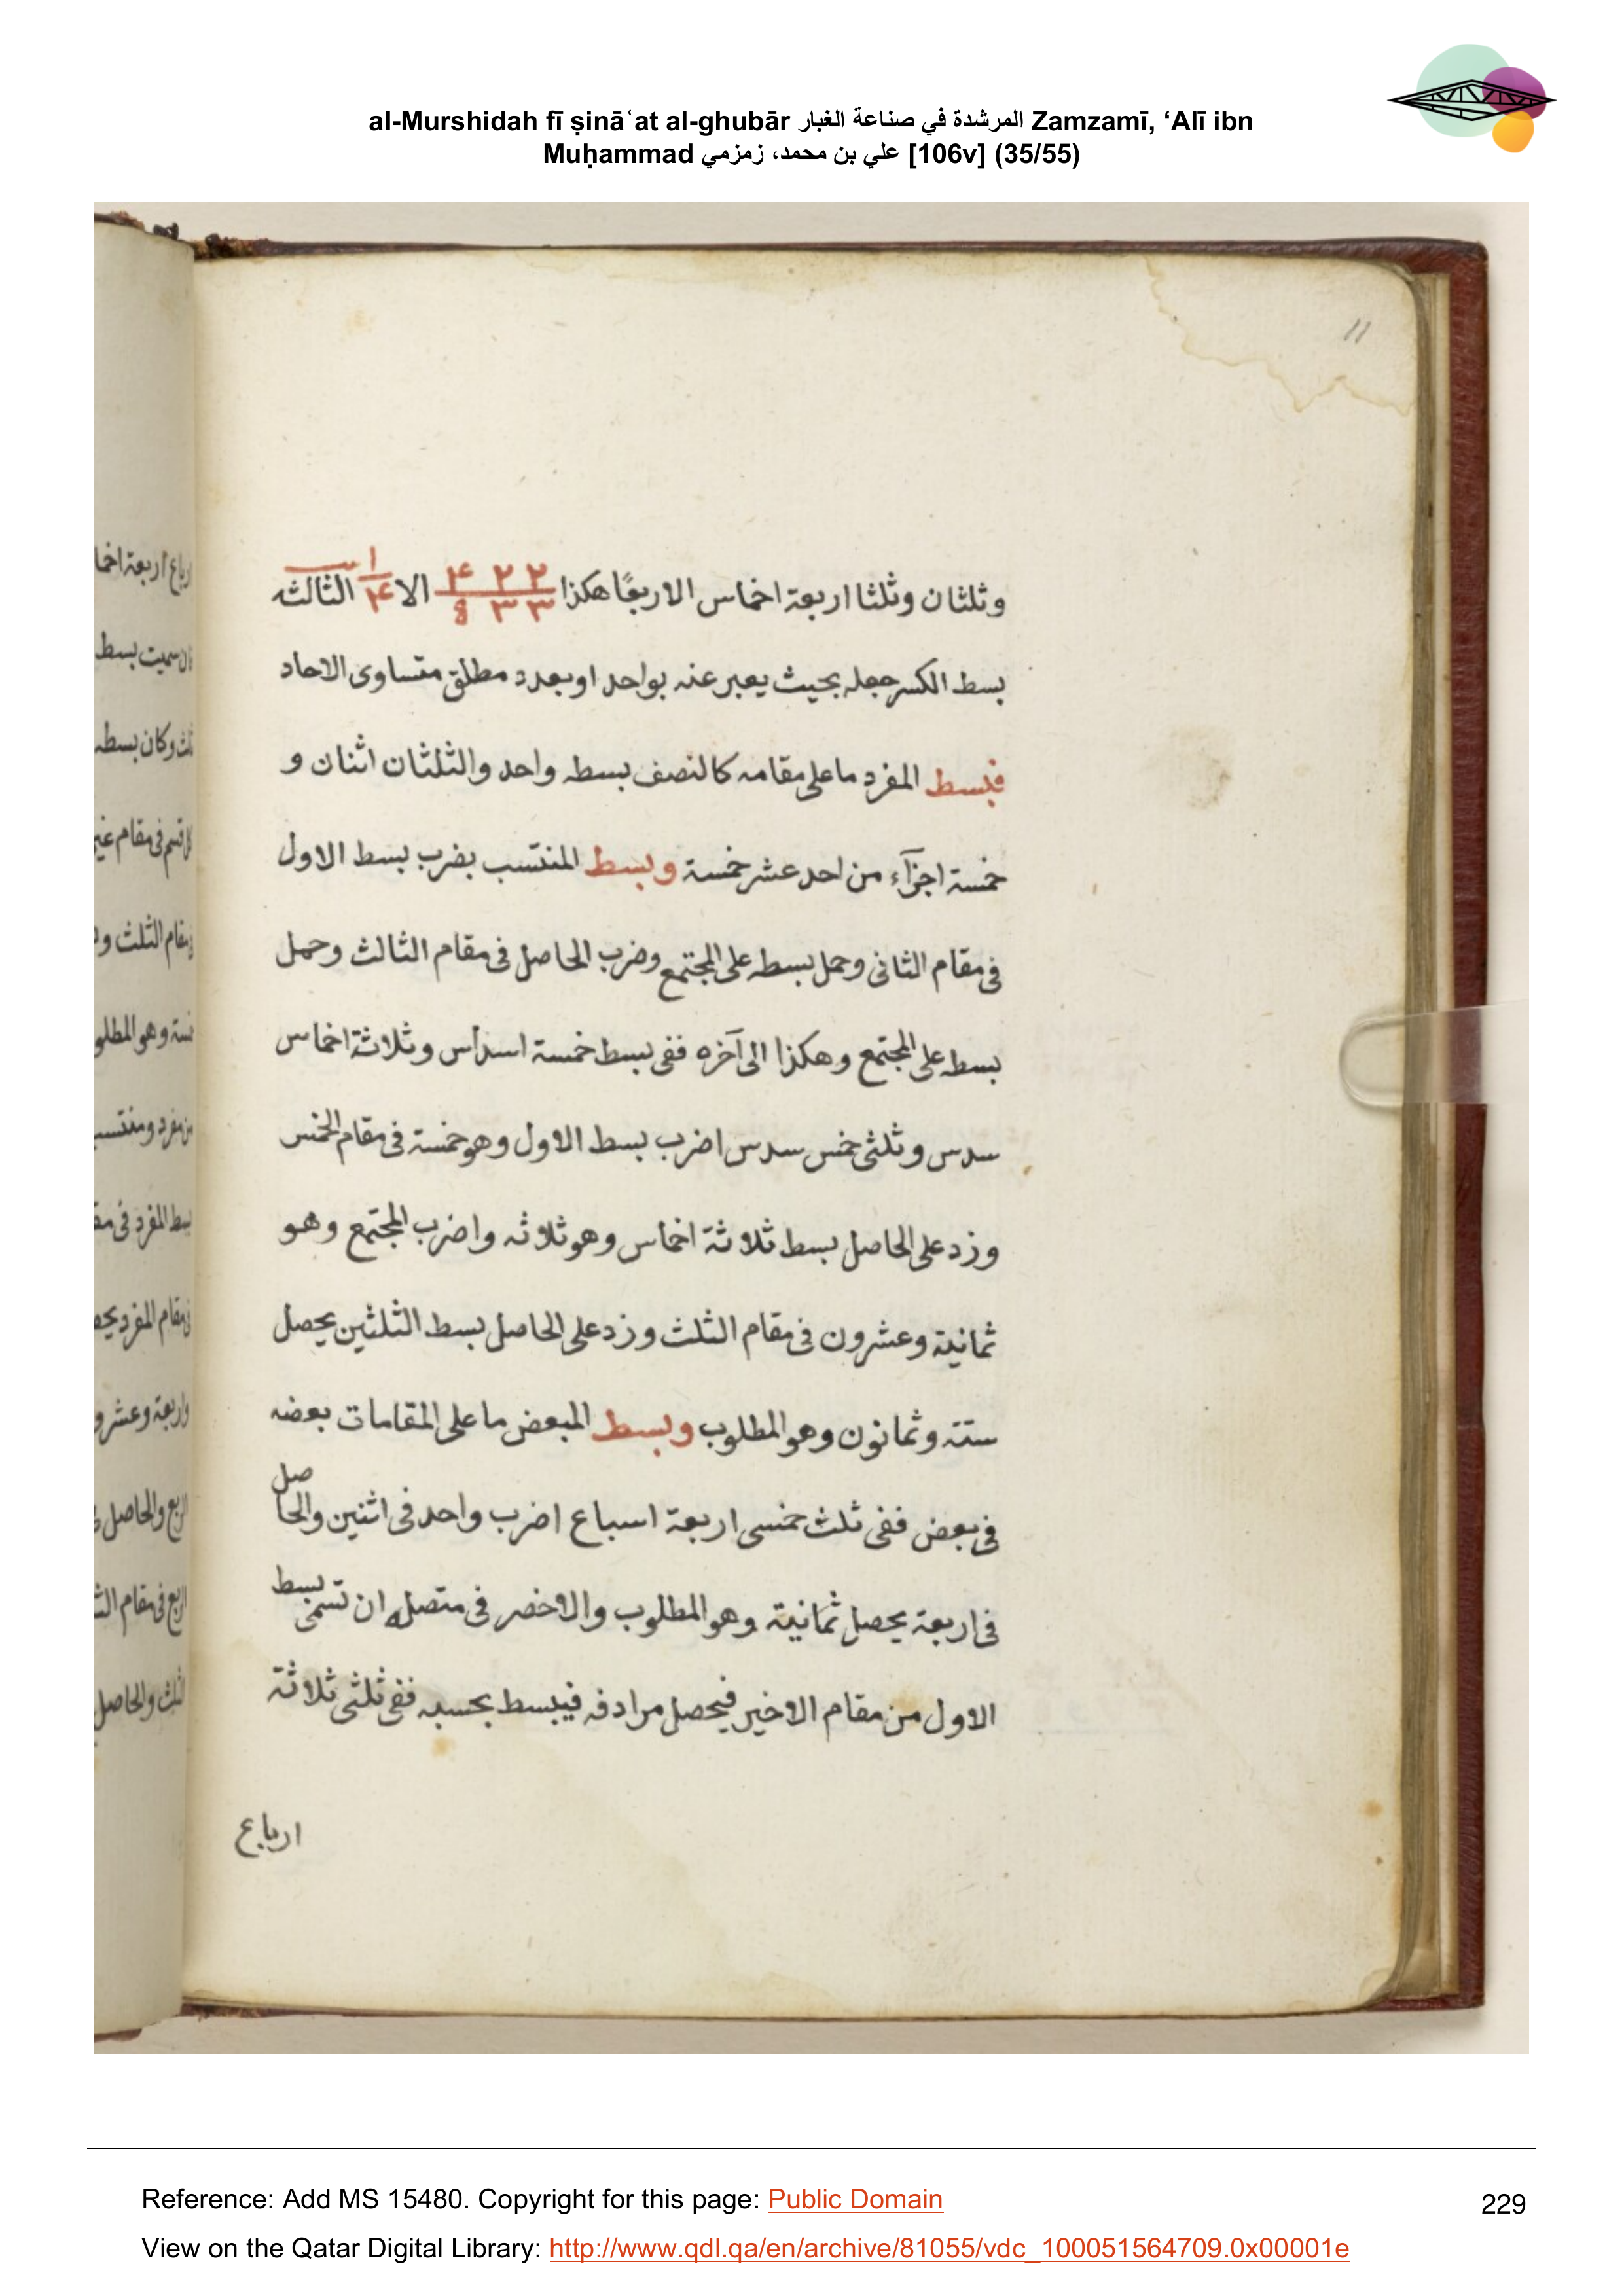 al-Murshidah fī ṣināʿat al-ghubār المرشدة في صناعة الغبار Zamzamī, ‘Alī ibn
Muḥammad علي بن محمد، زمزمي [106v] (35/55)
11
وثلثان وثلثا اربعة اخماس الا ربعًا هكذا ٢ ٢ ۴ / ٣ ٣ 8 الا ١ / ۴ الثالثه
بسط الكسر جعله بحيث يعبر عنه بواحد او بعدد مطلق متساوى الاحاد
فبسط المفرد ما على مقامه كالنصف بسطه واحد والثلثان اثنان و
خمسة اجزآء من احد عشر خمسة وبسط المنتسب بضرب بسط الاول
فى مقام الثانى وحمل بسطه على المجتمع وضرب الحاصل فى مقام الثالث وحمل
بسطه على المجتمع وهكذا الى آخره ففى بسط خمسة اسداس وثلاثة اخماس
سدس وثلثى خمس سدس اضرب بسط الاول وهو خمسة فى مقام الخمس
وزد على الحاصل بسط ثلاثة اخماس وهو ثلاثه واضرب المجتمع وهو
ثمانية وعشرون فى مقام الثلث وزد على الحاصل بسط الثلثين يحصل
ستة وثمانون وهو المطلوب وبسط المبعض ما على المقامات بعضه
فى بعض ففى ثلث خمسى اربعة اسباع اضرب واحد فى اثنين والحاصل
فى اربعة يحصل ثمانية وهو المطلوب والاخضر فى متصله ان تسمى بسط
الاول من مقام الاخير فيحصل مرادفه فيبسط بحسبه ففى ثلثى ثلاثة
ارباع
ارباع اربعة اخما
سميت بسط
ثلث وكان بسطه
قسم فى مقام غير
مقام الثلث و
وهو المطلو
مفرد ومنتسب
بسط المفرد فى مق
فى مقام المفرد يحص
واربعة وعشرو
الربع والحاصل
الربع فى مقام الث
الثلث والحاصل
Reference: Add MS 15480. Copyright for this page: Public Domain
229
View on the Qatar Digital Library: http://www.qdl.qa/en/archive/81055/vdc_100051564709.0x00001e